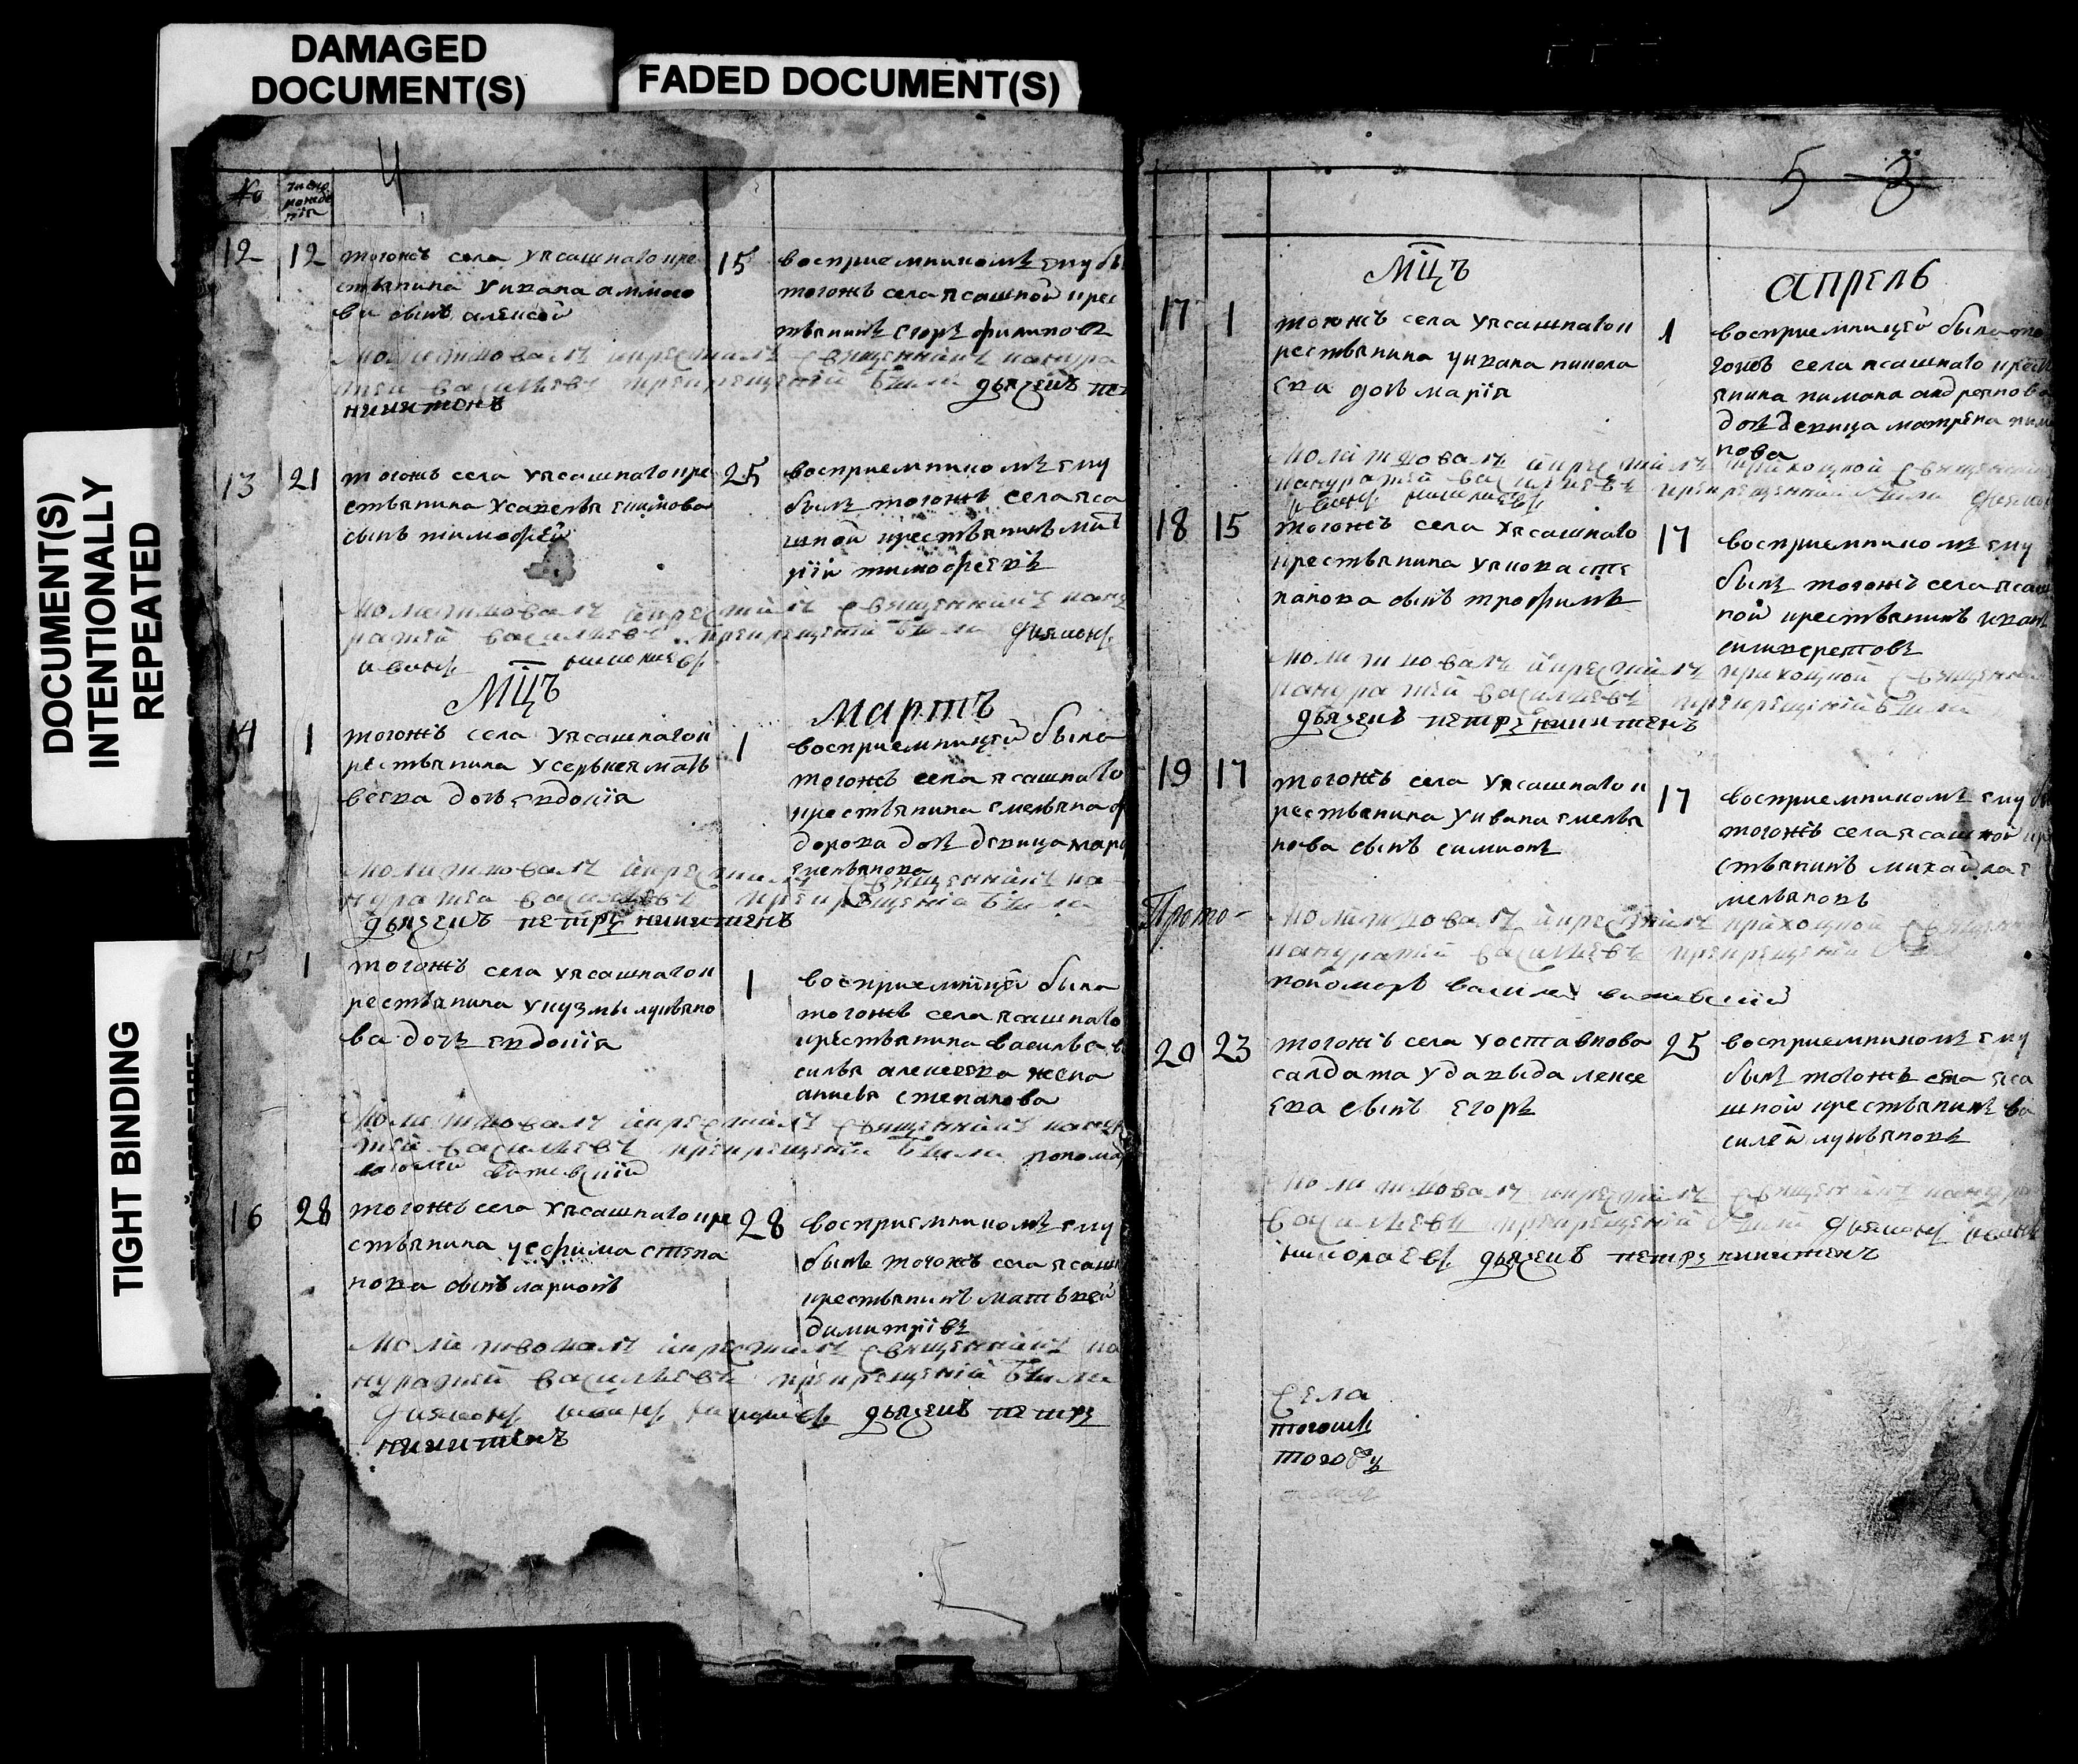 DAMAGED
DOCUMENT(S)
FADED DOCUMENT(S)
DOCUMENT(S)
INTENTIONALLY
REPEATED
TIGHT BINDING
4
№
число
рождения
12 12
тогожъ села уясашнаго кре
стьянина уивана аммосо
ва сынъ алексей
15
восприемникомъ ему бы
тогожъ села ясашной крес
тьянинъ егоръ филиповъ
молитвовалъ икрестилъ священникъ кандра
тей васильевъ прикрещении были дьячекъ пе
никитенъ
13 21
тогожъ села уясашнаго кре
стьянина усавелья екимова
сынъ тимофей
25
восприемникомъ ему
былъ тогожъ села яса
шной крестьянинъ
тимофеевъ
молитвовалъ икрестилъ священникъ канд
ратей васильевъ прикрещении были диаконъ
иванъ николаевъ
МЦЪ
мартъ
14 1
тогожъ села уясашнагок
рестьянина усергея мать
веева дочь евдокия
1
восприемницей была
тогожъ села ясашнаго
крестьянина емельяна ф
дорова дочь девица мар
емельянова
молитвовалъ икрестилъ священникъ ка
ндратей васильевъ прикрещении были
дьячекъ петръ никитенъ
15 1
тогожъ села уясашнагок
рестьянина укузмы лукьяно
ва дочь евдокия
1
восприемницей была
тогожъ села ясашнаго
крестьянина васильева
силья алексеева жена
степанова
молитвовалъ икрестилъ священникъ кандр
тей васильевъ прикрещении были понома
16 28
тогожъ села уясашнаго кре
стьянина уефима степа
нова сынъ ларионъ
28
восприемникомъ ему
былъ тогожъ села ясаш
крестьянинъ матьвей
димитриевъ
молитвовалъ икрестилъ священникъ ка
ндратей васильевъ прикрещении были
диаконъ иванъ дьячекъ петръ
никитенъ
5 3
МЦЪ
апрель
17 1
тогожъ села уясашнагок
рестьянина уивана никола
ева дочь мария
1
восприемницей была то
гожъ села ясашнаго кресть
янина пимана андреянова
дочь девица матрена пиме
нова
молитвовалъ икрестилъ приходной священни
кандратей васильевъ прикрещении были диако
иванъ николаевъ
18 15
тогожъ села уясашнаго
крестьянина уякова сте
панова сынъ трофимъ
17
восприемникомъ ему
былъ тогожъ села ясаш
ной крестьянинъ иванъ
силиверстовъ
молитвовалъ икрестилъ приходной священни
кандратей васильевъ прикрещении были
дьячекъ петръ никитенъ
19 17
тогожъ села уясашнагок
рестьянина уивана емелья
нова сынъ симионъ
17
восприемникомъ ему бы
тогожъ села ясашной кре
стьянинъ михайла е
мельяновъ
Прото-
молитвовалъ икрестилъ приходной священни
кандратей васильевъ прикрещении были
пономорь василей
20 23
тогожъ села уоставнова
салдата удавыда алексе
ева сынъ егоръ
25
восприемникомъ ему
былъ тогожъ села яса
шной крестьянинъ ва
силей лукьяновъ
молитвовалъ икрестилъ священникъ кандра
васильевъ прикрещении были диаконъ иванъ
николаевъ дьячекъ петръ никитенъ
села
тогожъ